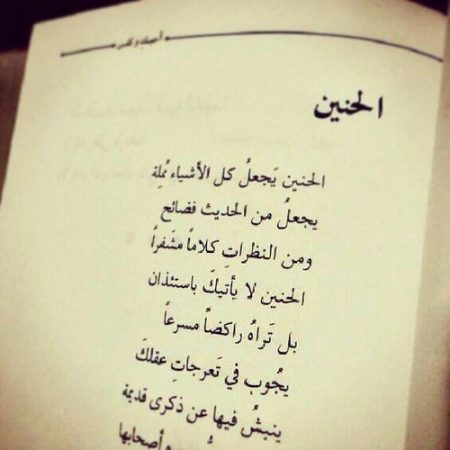 أحببتك وكفى
الحنين
الحنين يَجعلُ كل الأشياء مُملة
يجعلُ من الحديث فضائح
ومن النظراتِ كلاماً مشَفراً
الحنين لا يأتيكَ باستئذان
بل تَراهُ راكضاً مسرعاً
يجُوب في تَعرجاتِ عقلكَ
ينبشُ فيها عن ذكرى قديمة
وأصحابها